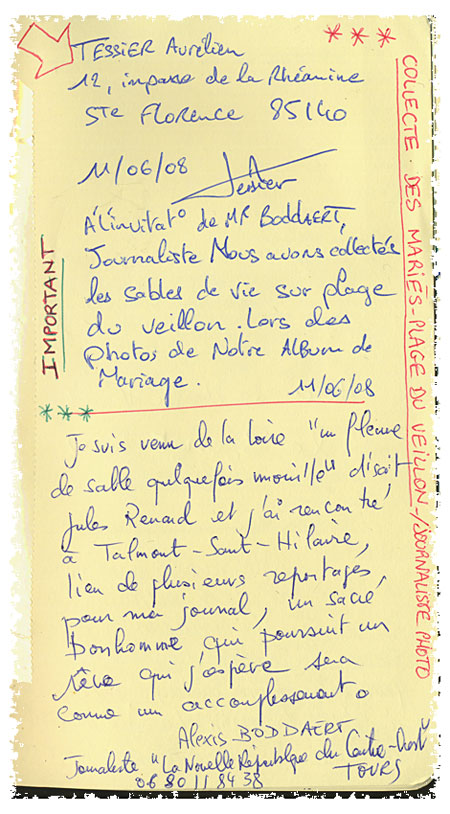 TESSIER Aurélien
12, impasse de la Rhéamine
Ste FLORENCE 85140
11/06/08 Tessier
A l'invitat° de MR BODDAERT,
Journaliste Nous avons collectés
les sables de vie sur plage
du veillon. Lors des
photos de Notre ALBUM de
Mariage.
11/06/08
IMPORTANT
COLLECTE DES MARIÉS - PLAGE DU VEILLON - /JOURNALISTE PHOTO
Je suis venu de la Loire "un fleuve
de sable quelquefois mouillé" disait
Jules Renard et j'ai rencontré
à Talmont-Saint-Hilaire,
lieu de plusieurs reportages,
pour mon journal, un sacré
bonhomme qui poursuit un
rêve qui j'espère sera
comme un accomplissement.
Alexis BODDAERT
Journaliste "La Nouvelle République du Centre-Ouest"
TOURS
06 80 11 84 38